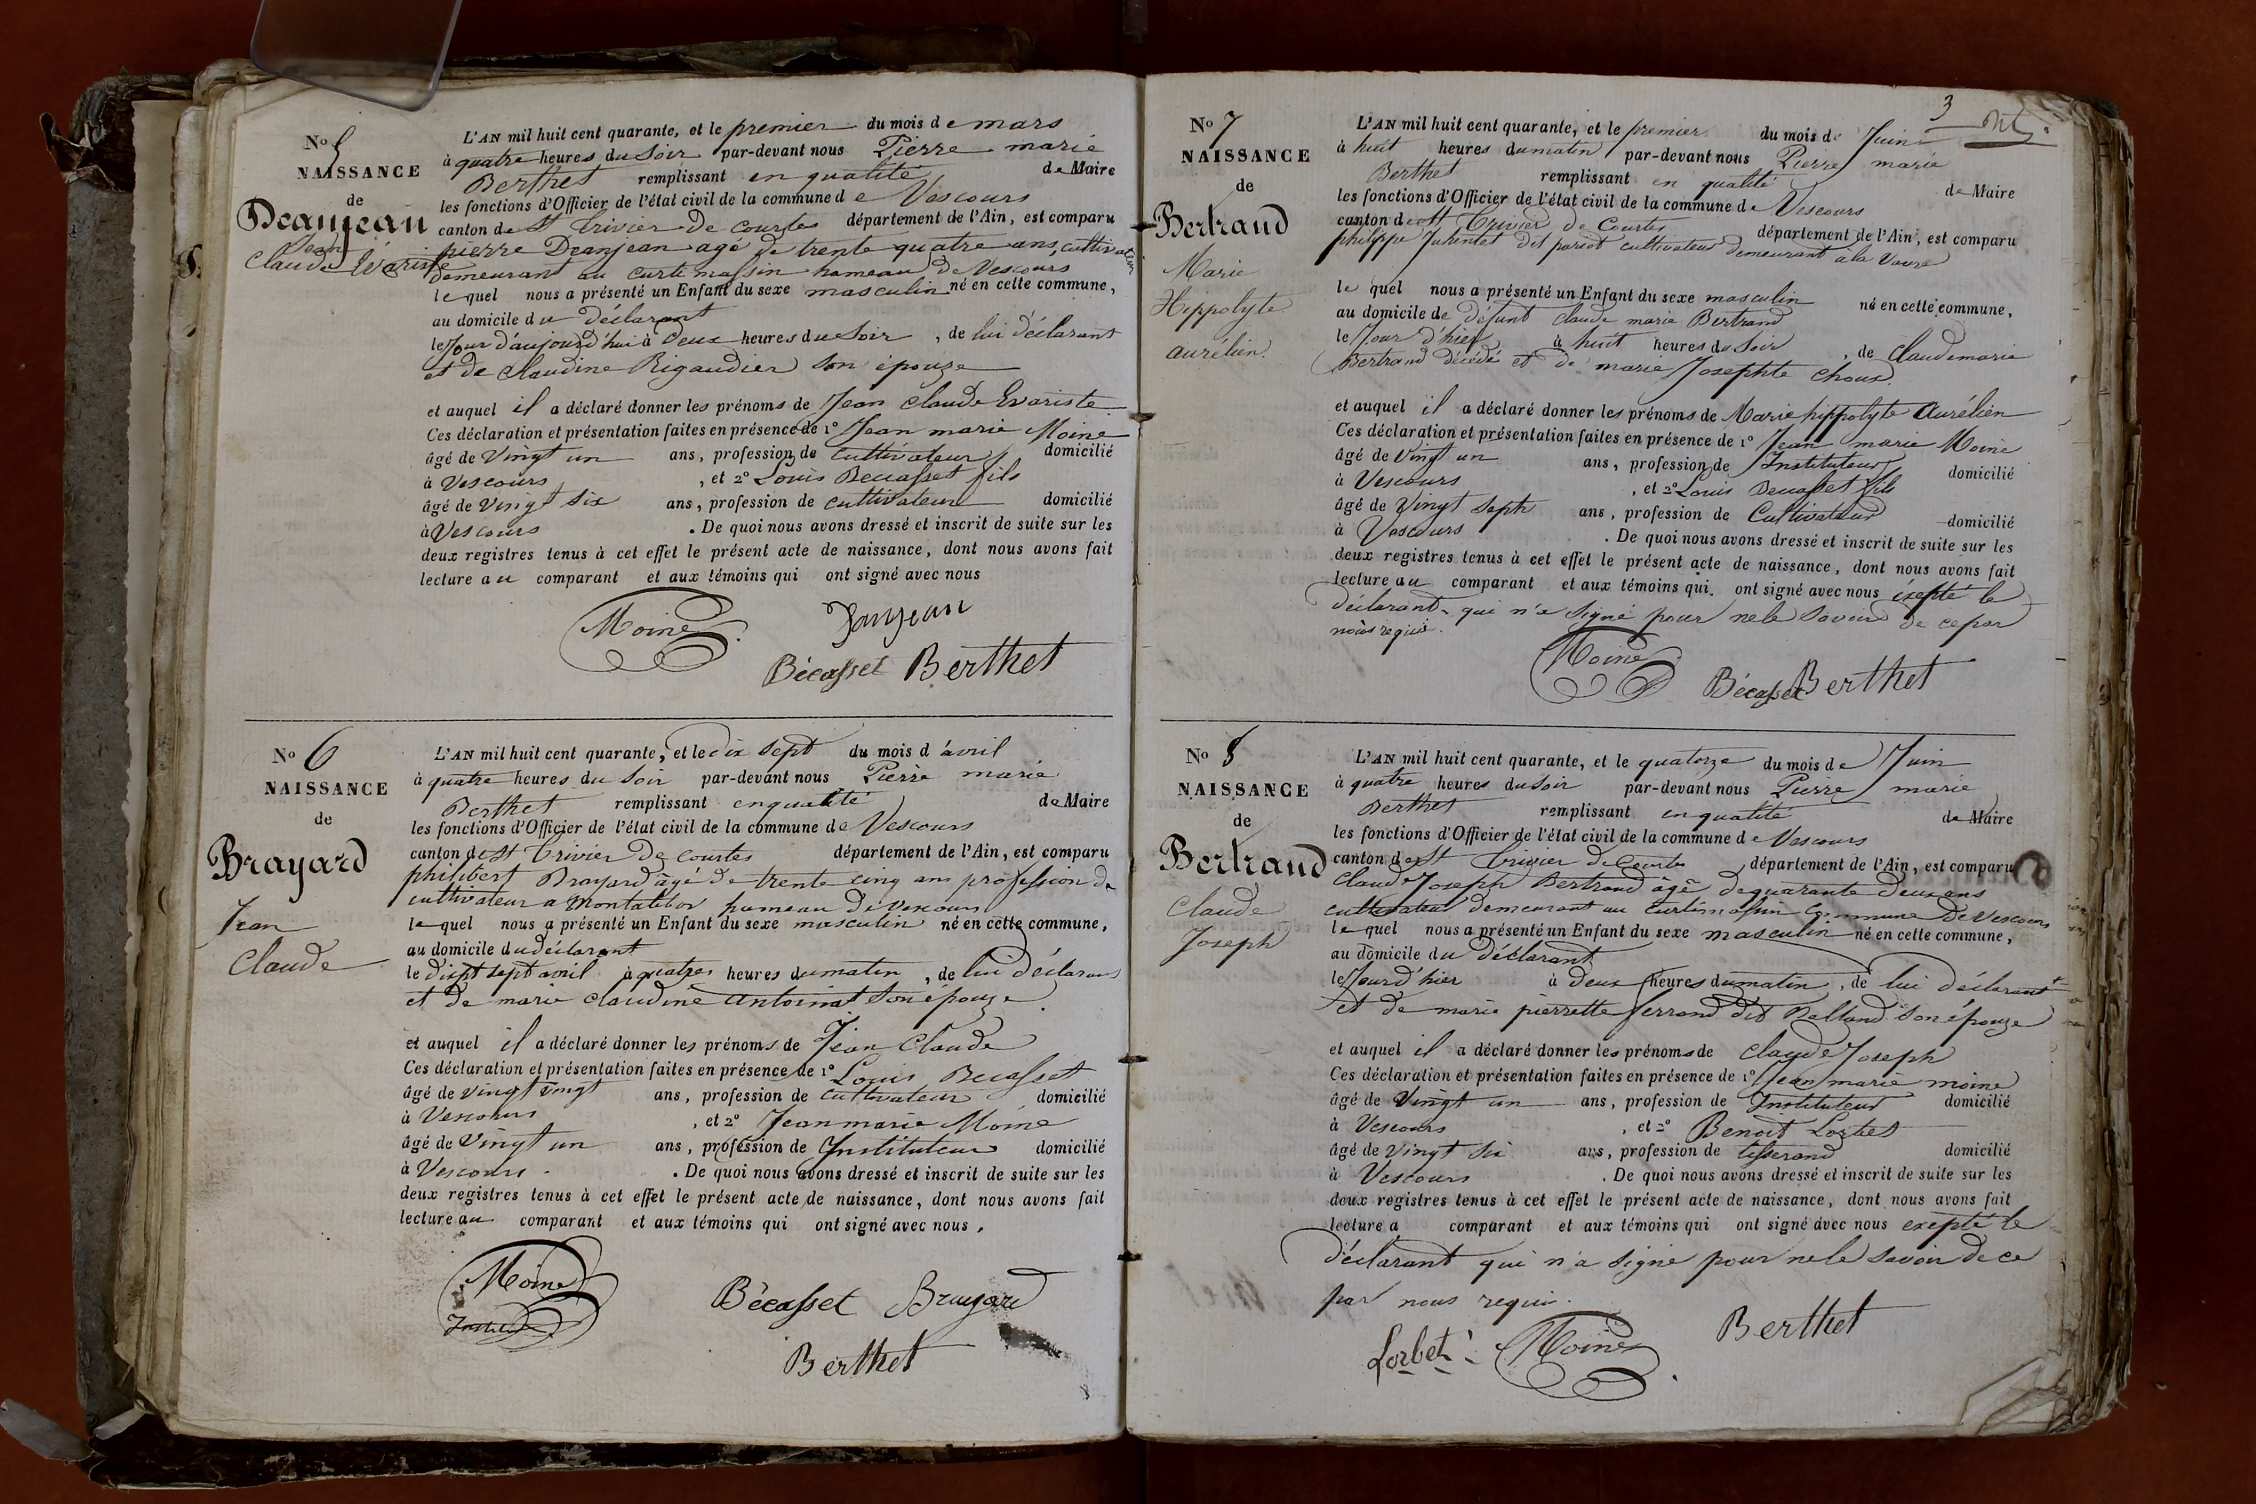 No 5
NAISSANCE
de
Deanjean
Jean
Claude Evariste
L'AN mil huit cent quarante, et le premier du mois de mars
à quatre heures du Soir par-devant nous Pierre marie
Berthet remplissant en qualité de Maire
les fonctions d'Officier de l'état civil de la commune de Vescours
canton de St Trivier de Courtes département de l'Ain, est comparu
pierre Deanjean agé de trente quatre ans, cultivateur
demeurant au curtemassin hameau de Vescours
lequel nous a présenté un Enfant du sexe masculin né en cette commune,
au domicile du déclarant
le Jour d'aujourd'hui à Deux heures du Soir, de lui déclarant
et de Claudine Rigaudier son épouze
et auquel il a déclaré donner les prénoms de Jean Claude Evariste
Ces déclaration et présentation faites en présence de 1º Jean marie Moine
âgé de Vingt un ans, profession de Cultivateur domicilié
à Vescours, et 2º Louis Becasset fils
âgé de Vingt Six ans, profession de cultivateur domicilié
à Vescours. De quoi nous avons dressé et inscrit de suite sur les
deux registres tenus à cet effet le présent acte de naissance, dont nous avons fait
lecture au comparant et aux témoins qui ont signé avec nous
Moine Janjean
Bécasset Berthet
No 6
NAISSANCE
de
Brayard
Jean
Claude
L'AN mil huit cent quarante, et le dix sept du mois d'avril
à quatre heures du Soir par-devant nous Pierre marie
Berthet remplissant en qualité de Maire
les fonctions d'Officier de l'état civil de la commune de Vescours
canton de St Trivier de Courtes département de l'Ain, est comparu
philibert Brayard âgé de trente cinq ans profession de
cultivateur a hameau de Vescours
lequel nous a présenté un Enfant du sexe masculin né en cette commune,
au domicile du déclarant
le sept avril à quatre heures du matin, de lui déclarant
et de marie claudine Antoinat son épouze
et auquel il a déclaré donner les prénoms de Jean Claude
Ces déclaration et présentation faites en présence de 1º Louis Becasset
âgé de vingt ans, profession de cultivateur domicilié
à Vescours, et 2º Jean marie Moine
âgé de Vingt un ans, profession de Instituteur domicilié
à Vescours. De quoi nous avons dressé et inscrit de suite sur les
deux registres tenus à cet effet le présent acte de naissance, dont nous avons fait
lecture au comparant et aux témoins qui ont signé avec nous,
Moine
Bécasset Brayard
Berthet
3
No 7
NAISSANCE
de
Bertrand
Marie
Hippolyte
aurélien.
L'AN mil huit cent quarante, et le premier du mois de Juin
à huit heures du matin par-devant nous Pierre marie
Berthet remplissant en qualité de Maire
les fonctions d'Officier de l'état civil de la commune de Vescours
canton de St Trivier de Courtes département de l'Ain, est comparu
philippe dit cultivateur demeurant a la
lequel nous a présenté un Enfant du sexe masculin né en cette commune,
au domicile de défunt Claude marie Bertrand
le Jour d'hier à huit heures du Soir, de Claude marie
Bertrand décédé et de marie Josephte Choux
et auquel il a déclaré donner les prénoms de Marie hippolyte Aurélien
Ces déclaration et présentation faites en présence de 1º Jean marie Moine
âgé de Vingt un ans, profession de Instituteur domicilié
à Vescours, et 2º Louis Becasset fils
âgé de Vingt Septh ans, profession de Cultivateur domicilié
à Vescours. De quoi nous avons dressé et inscrit de suite sur les
deux registres tenus à cet effet le présent acte de naissance, dont nous avons fait
lecture au comparant et aux témoins qui ont signé avec nous éxepté le
déclarant qui n'a signé pour ne le Savoir de ce par
nous requis.
Moine
Bécasset Berthet
No 8
NAISSANCE
de
Bertrand
Claude
Joseph
L'AN mil huit cent quarante, et le quatorze du mois de Juin
à quatre heures du Soir par-devant nous Pierre marie
Berthet remplissant en qualité de Maire
les fonctions d'Officier de l'état civil de la commune de Vescours
canton de St Trivier de Courtes département de l'Ain, est comparu
Claude Joseph Bertrand âgé de quarante deux ans
cultivateur demeurant au Curtémassin Commune de Vescours
lequel nous a présenté un Enfant du sexe masculin né en cette commune,
au domicile du déclarant
le Jour d'hier à Deux heures du matin, de lui déclarant
et de marie pierrette ferrand dit Rolland son épouze
et auquel il a déclaré donner les prénoms de Claude Joseph
Ces déclaration et présentation faites en présence de 1º Jean marie moine
âgé de Vingt un ans, profession de Instituteur domicilié
à Vescours, et 2º Benoit Lorbet
âgé de vingt Six ans, profession de tisserand domicilié
à Vescours. De quoi nous avons dressé et inscrit de suite sur les
deux registres tenus à cet effet le présent acte de naissance, dont nous avons fait
lecture a comparant et aux témoins qui ont signé avec nous exepté le
déclarant qui n'a signé pour ne le savoir de ce
par nous requis.
Lorbet Moine Berthet